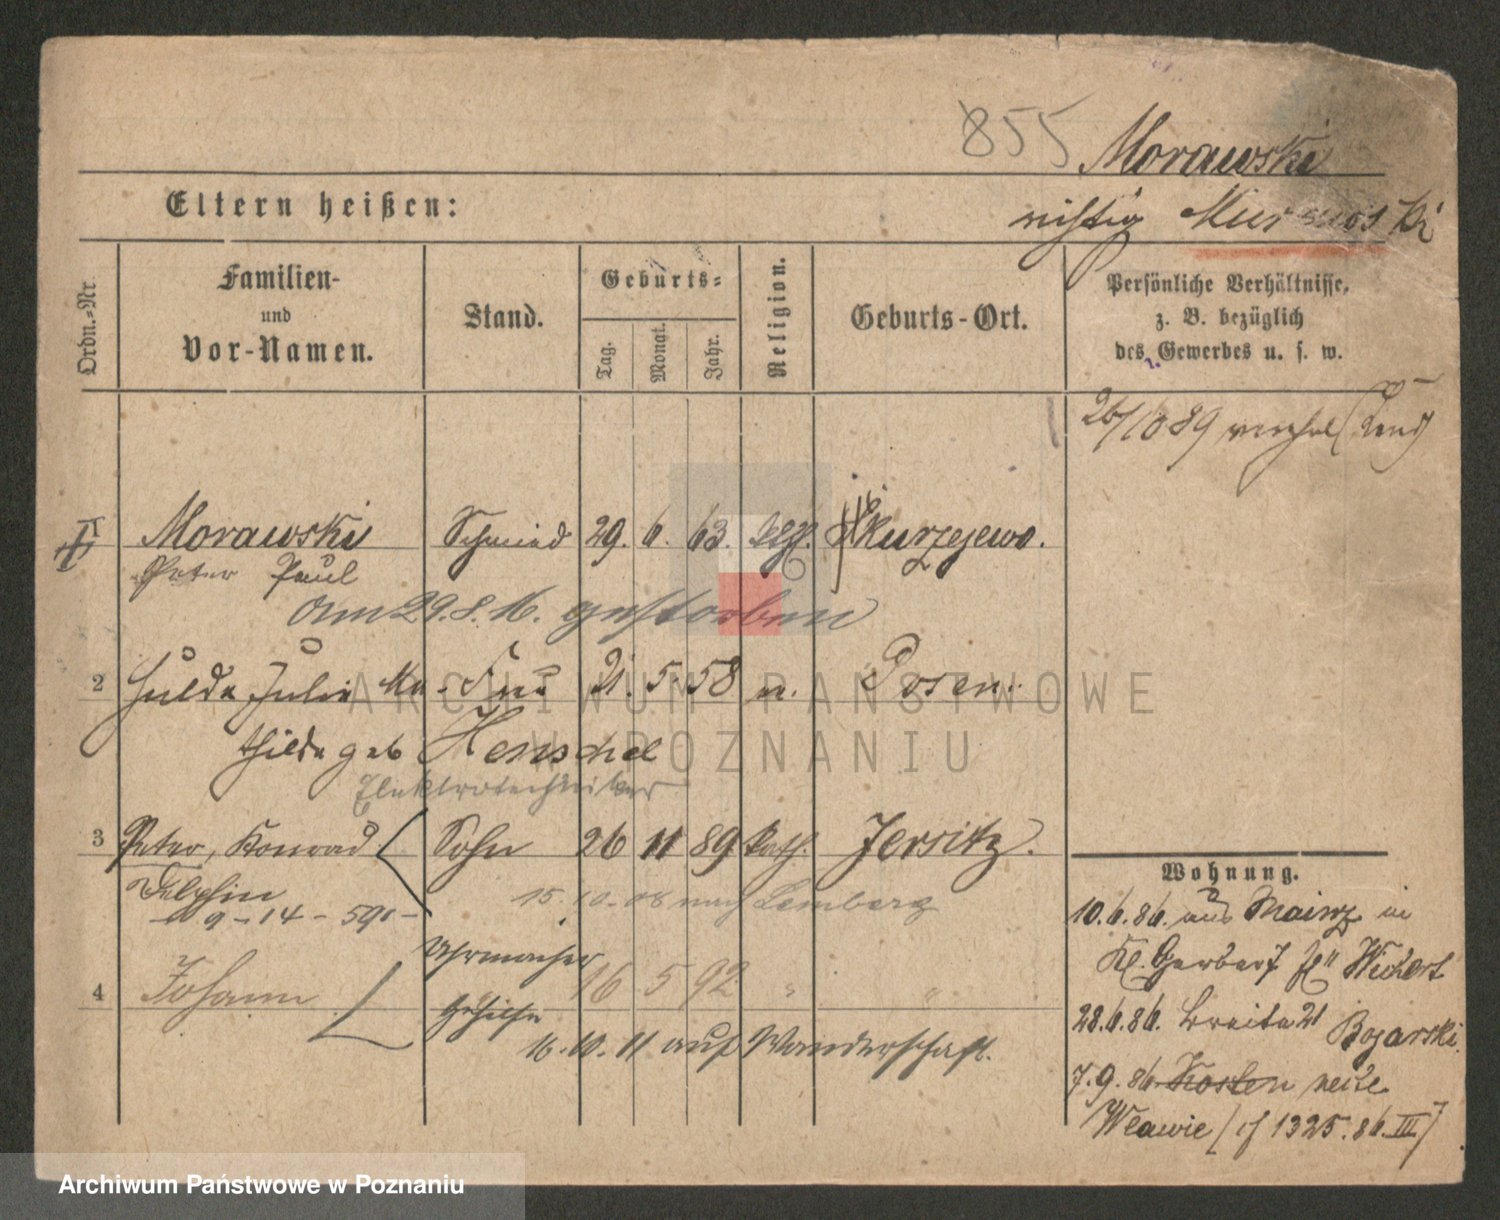 855 Morawski
Eltern heißen:
richtig Murawski
Ordn.-Nr.
Familien-
und
Vor-Namen.
Stand.
Geburts-
Tag.
Monat.
Jahr.
Religion.
Geburts-Ort.
Persönliche Verhältnisse,
z. B. bezüglich
des Gewerbes u. s. w.
26/10 89
Morawski Schmied 29. 6. 63. Skurzejewo.
Peter Paul
am 29.8.16. gestorben
2 Hulda Julia Ma- Frau 21. 5. 58 Posen.
thilde geb Henschel
Elektrotechniker
3 Peter, Konrad Sohn 26 11 89 kath. Jersitz.
Delphin
9-14-591-
15.10.08 nach Lemberg
Uhrmacher
4 Johann 16 5 92 " "
Gehilfe
16.10.11 auf Wanderschaft.
Wohnung.
10.6.86. aus Mainz in
Kl. Gerber 7 Wichert
28.6.86. Breite 21 Bogarski.
7.9.86 Kosten
Wlawie (cf 1325.86.III)
ARCHIWUM PAŃSTWOWE
W POZNANIU
Archiwum Państwowe w Poznaniu